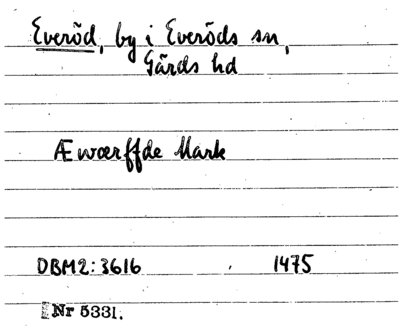 Everöd, by i Everöds sn,
Gärds hd
Æwærffde Mark
DBM2:3616 1475
Nr 5331.